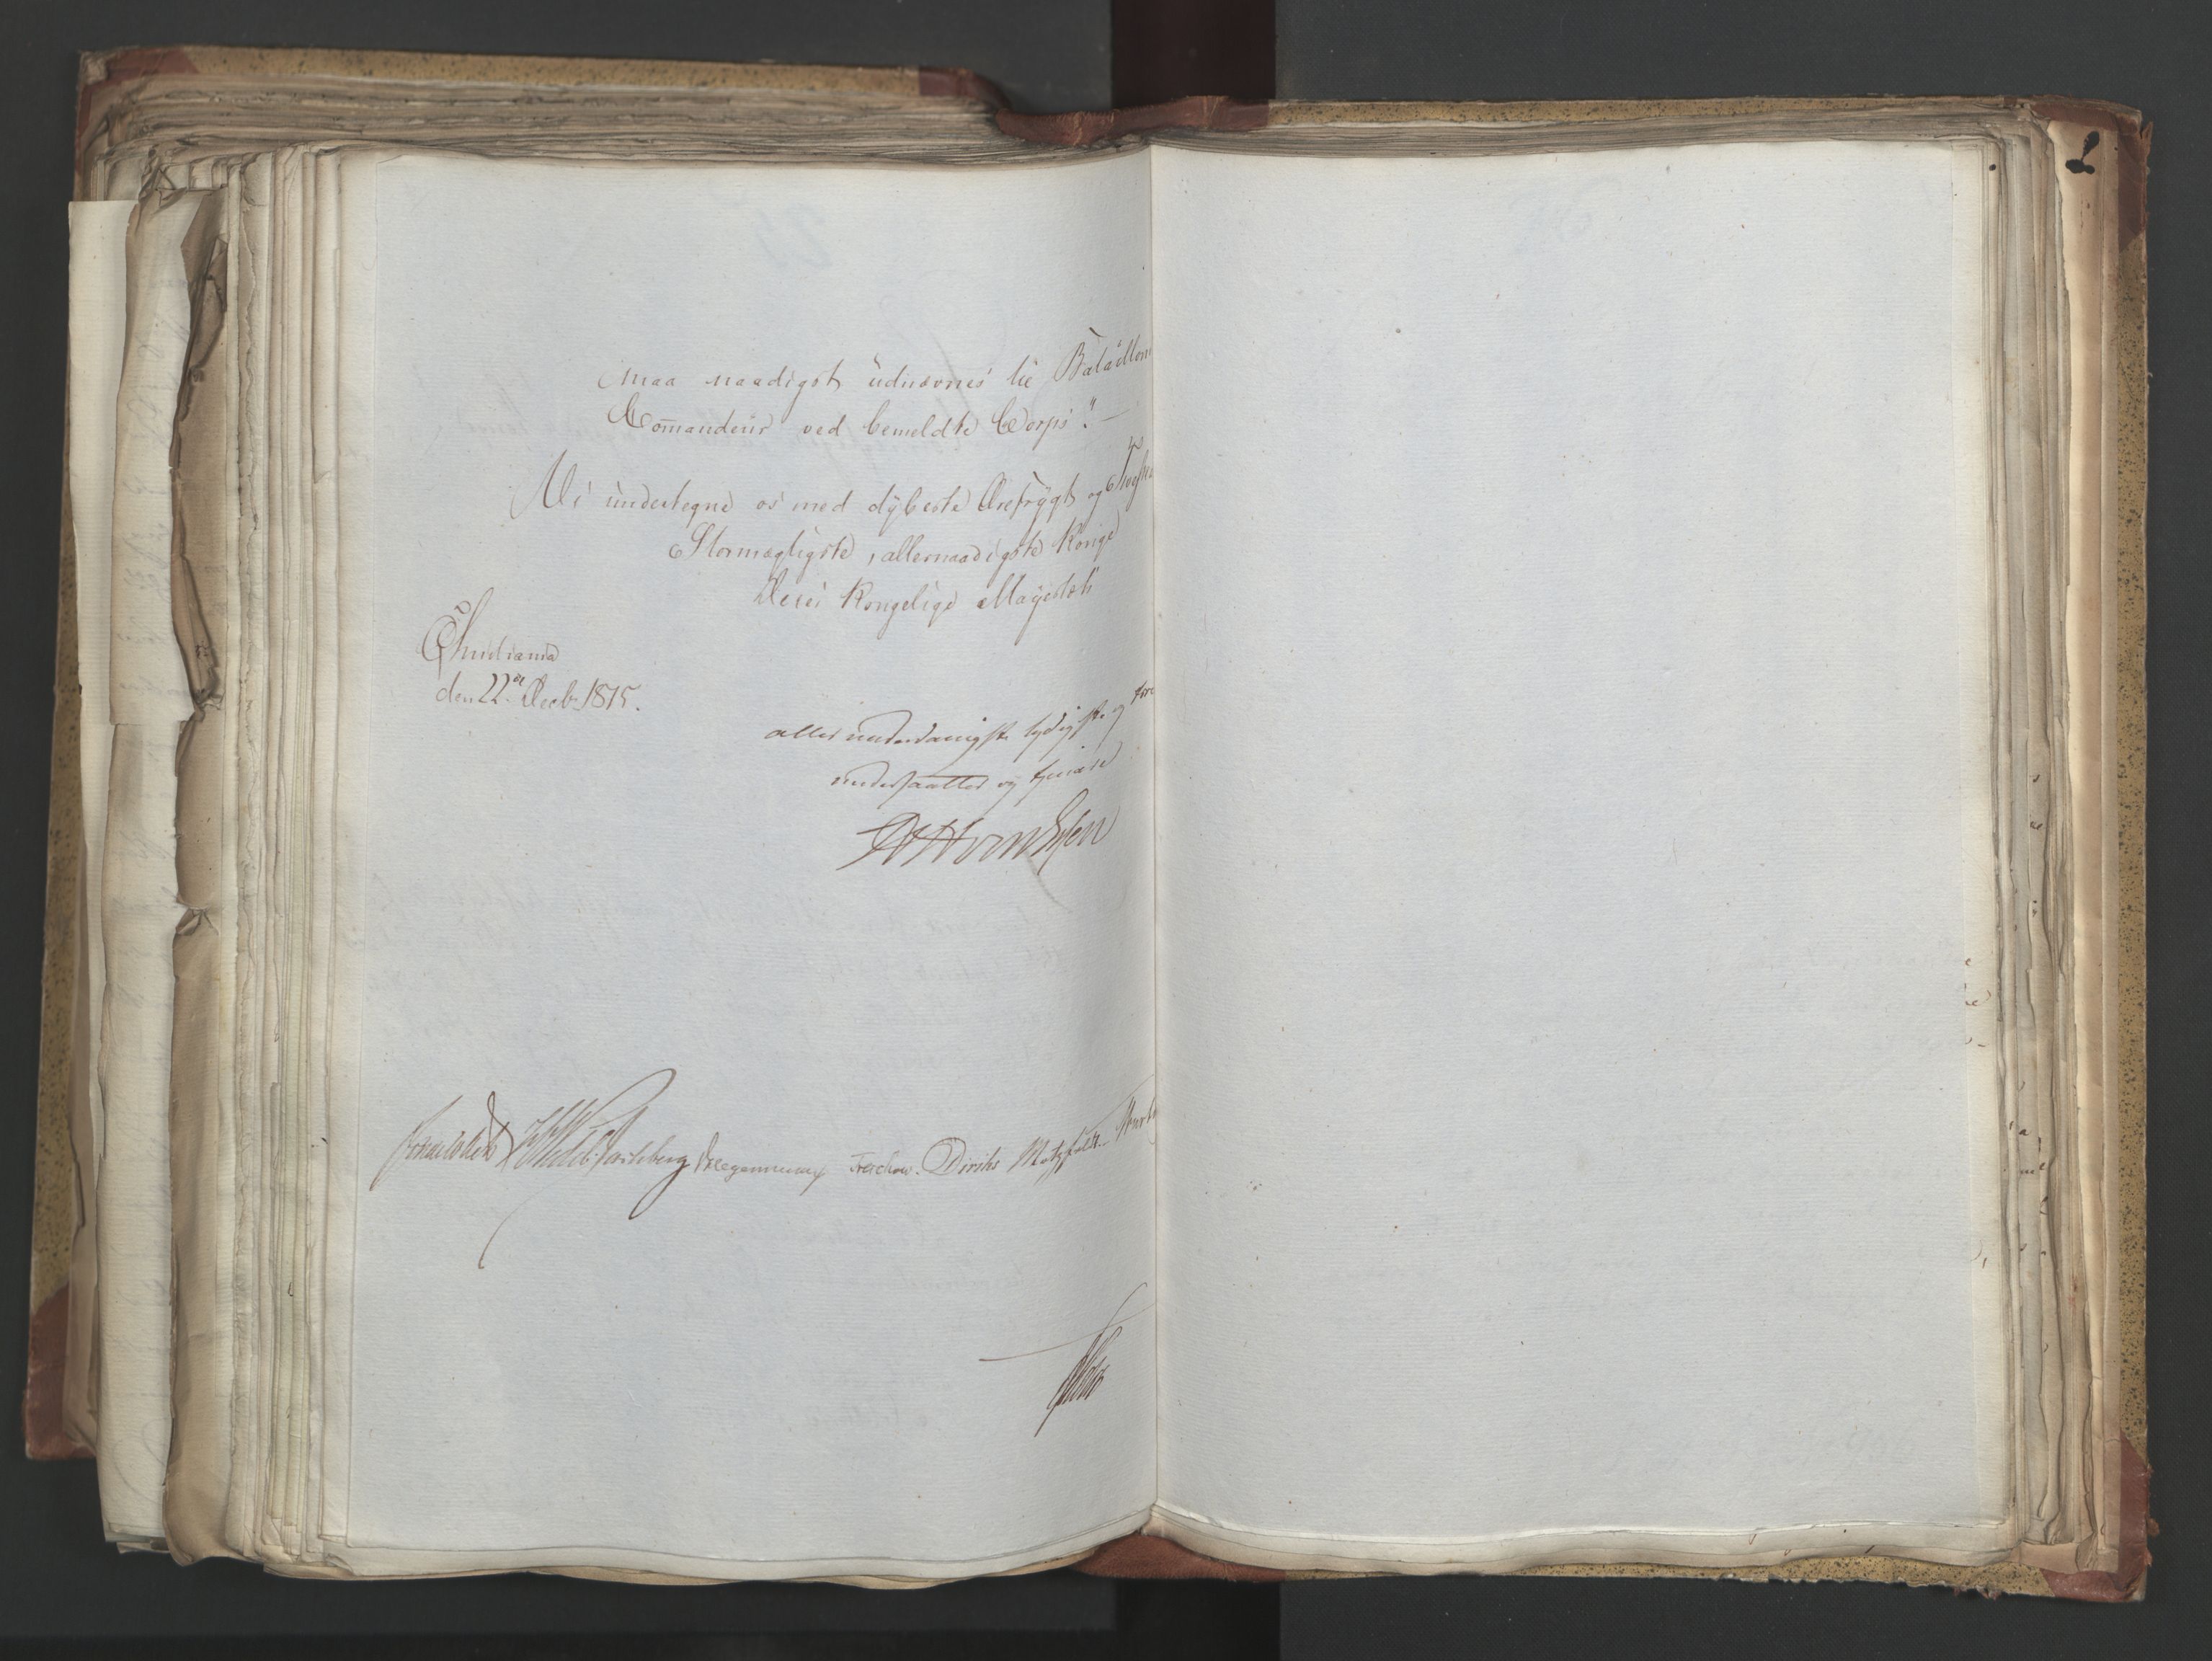 maa naadigst udnævnes til Bataillons
Com̄andeur ved bemeldte Corps". —
Vi undertegne os med dybeste Ærefrygt og
Stormægtigste, allernaadigste Konge
Deres Kongelige Mayestæts
Christiania
den 22de Decbr 1815.
allerunderdanigste lydigste og
undersaatter og tjenere
Wedel Jarlsberg Treschow. Diriks Motzfeldt.